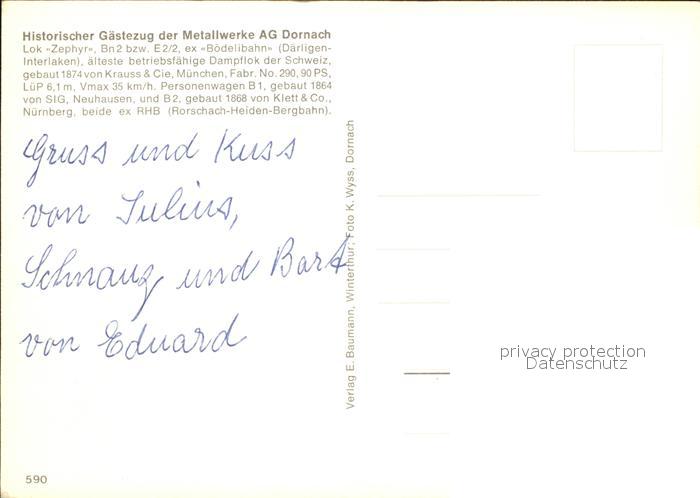 Historischer Gästezug der Metallwerke AG Dornach
Lok «Zephyr», Bn 2 bzw. E 2/2, ex «Bödelibahn» (Därligen-
Interlaken), älteste betriebsfähige Dampflok der Schweiz,
gebaut 1874 von Krauss & Cie, München, Fabr. No. 290, 90 PS,
LüP 6,1 m, Vmax 35 km/h. Personenwagen B 1, gebaut 1864
von SIG, Neuhausen, und B 2, gebaut 1868 von Klett & Co.,
Nürnberg, beide ex RHB (Rorschach-Heiden-Bergbahn).
Gruss und Kuss
von Julius,
Schnauz und Bart
von Eduard
Verlag E. Baumann, Winterthur; Foto K. Wyss, Dornach
privacy protection
Datenschutz
590